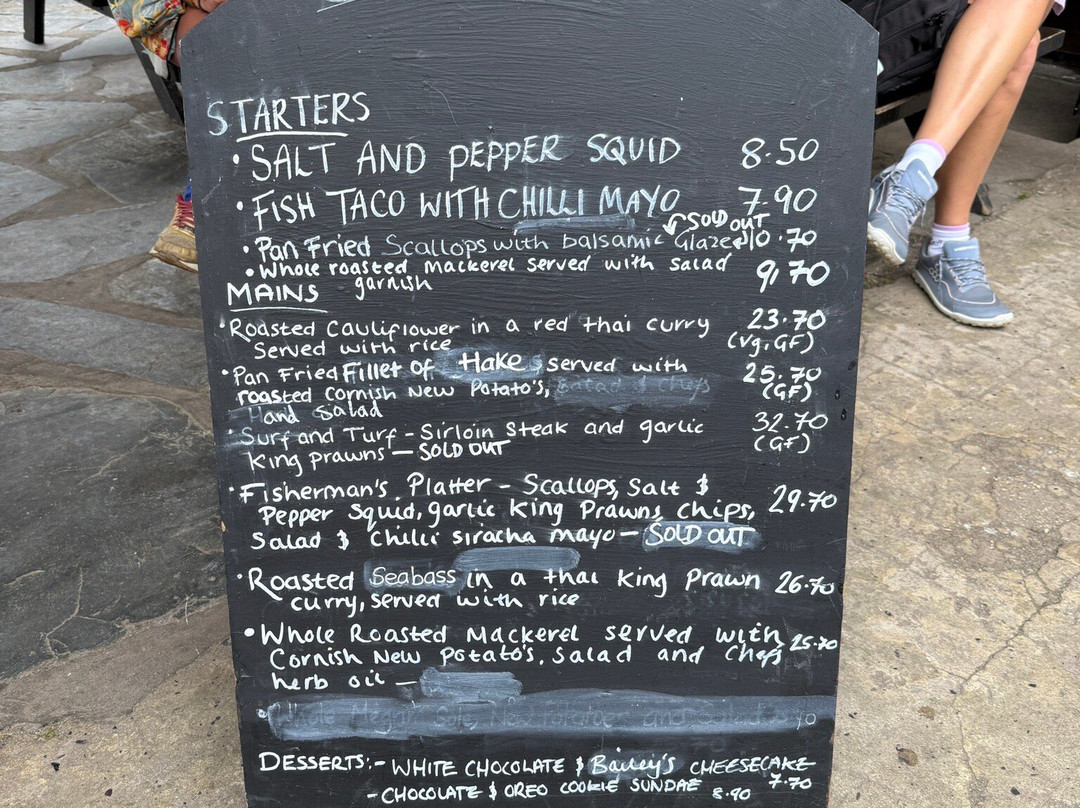 STARTERS
• SALT AND PEPPER SQUID 8.50
• FISH TACO WITH CHILLI MAYO 7.90
SOLD OUT
• Pan Fried Scallops with balsamic Glaze 10.70
• Whole roasted Mackerel served with salad 9.70
garnish
MAINS
• Roasted Cauliflower in a red thai curry 23.70
served with rice (Vg, GF)
• Pan Fried Fillet of Hake served with 25.70
roasted Cornish New Potato's, Salad & Chefs (GF)
and Salad
• Surf and Turf - Sirloin Steak and garlic 32.70
King prawns - SOLD OUT (GF)
• Fisherman's Platter - Scallops, Salt & 29.70
Pepper Squid, garlic King Prawns, chips,
Salad & Chilli siracha mayo - SOLD OUT
• Roasted Seabass in a thai King Prawn 26.70
curry, served with rice
• Whole Roasted Mackerel served with 25.70
Cornish New Potato's, Salad and Chefs
herb oil -
• Whole Megrim Sole, New potatoes and salad
DESSERTS:- WHITE CHOCOLATE & Bailey's CHEESECAKE
7.70
- CHOCOLATE & OREO COOKIE SUNDAE 8.90